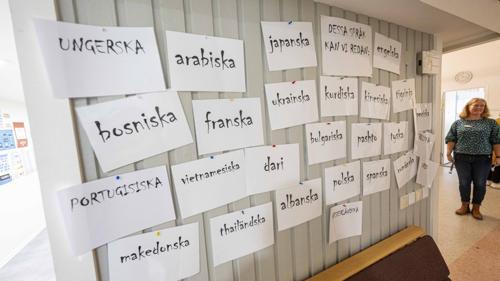 UNGERSKA
arabiska
japanska
DESSA SPRÅK
KAN VI REDAN:
engelska
bosniska
franska
ukrainska
kurdiska
kinesiska
bulgariska
pashto
tyska
PORTUGISISKA
vietnamesiska
dari
polska
spanska
makedonska
thailändska
albanska